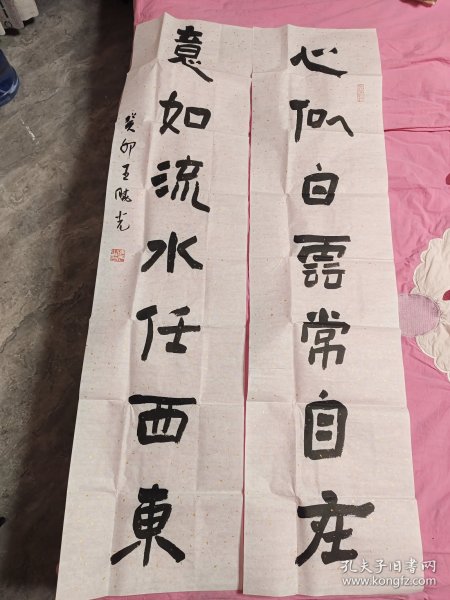 心似白雲常自在
意如流水任西東
癸卯 王曉光
孔夫子旧书网
www.kongfz.com